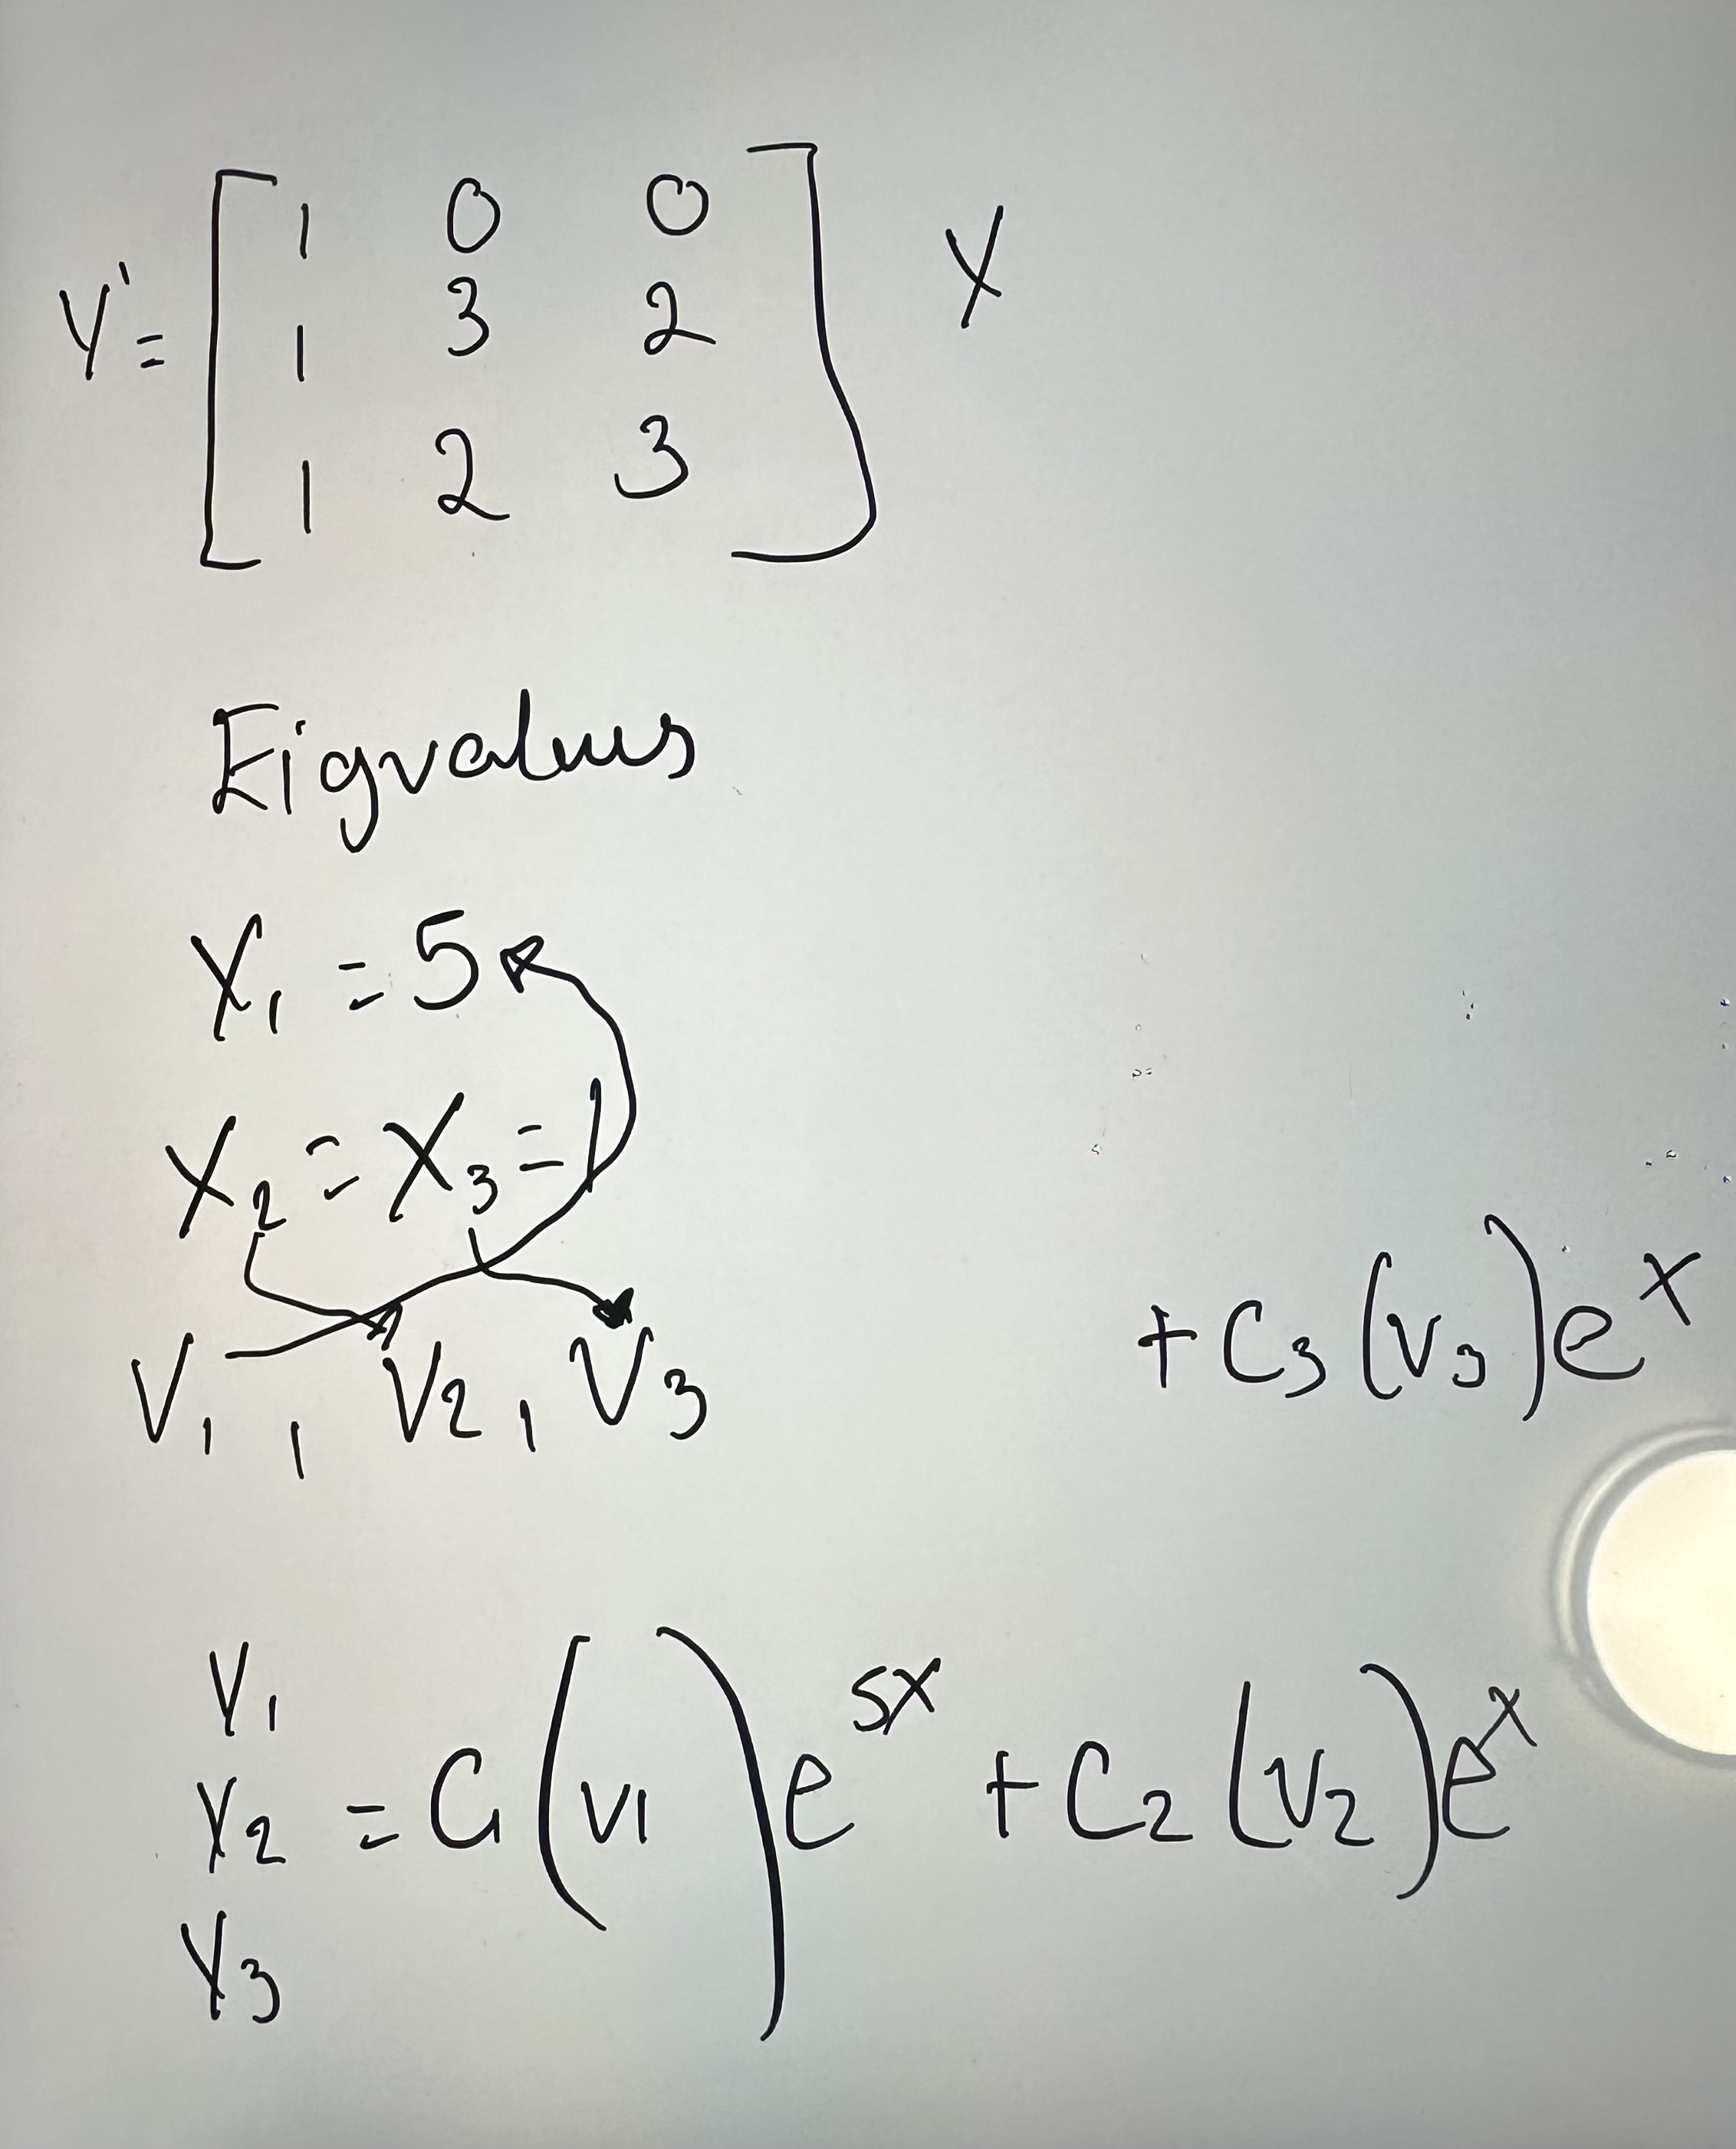 1 0 0
Y' = 1 3 2 Y
1 2 3
Eigvalues
X₁ = 5
X₂ = X₃ = 1
V₁, V₂, V₃
+ C₃ (V₃) eˣ
Y₁
Y₂ = C₁ (V1) e⁵ˣ + C₂ (V₂) eˣ
Y₃